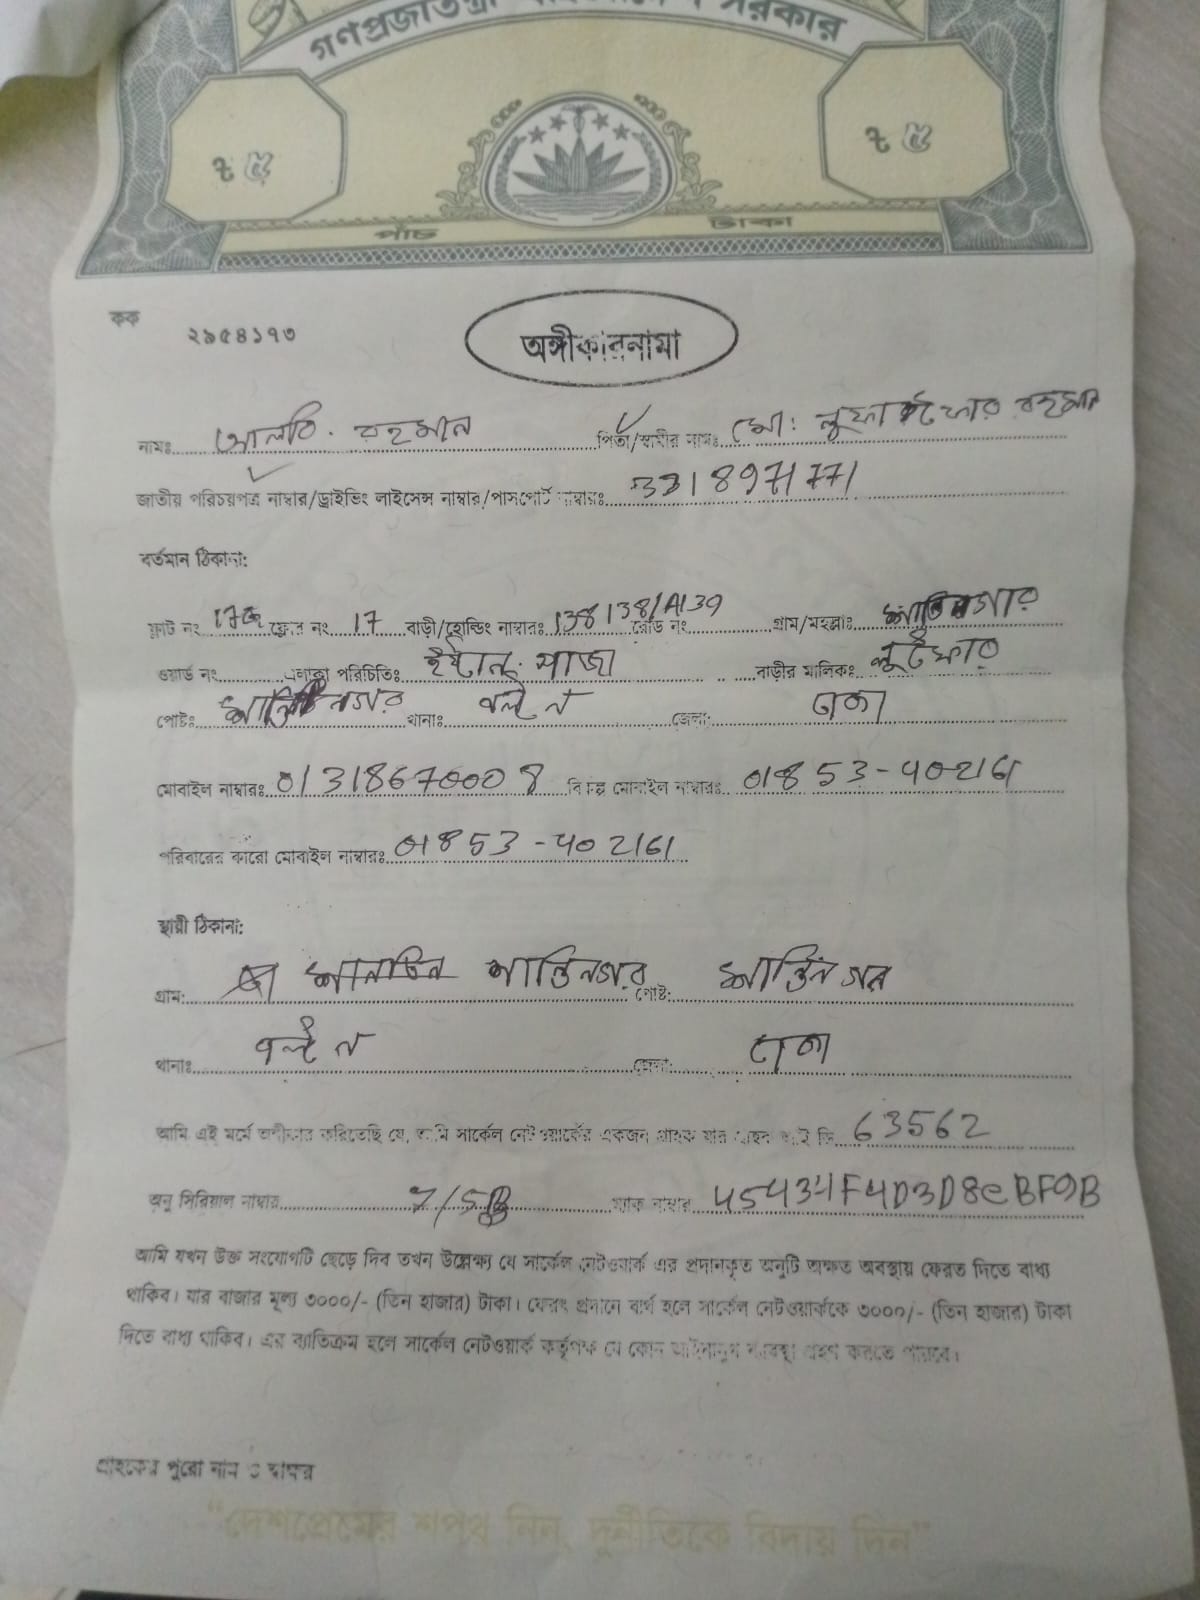 গণপ্রজাতন্ত্রী বাংলাদেশ সরকার
৳ ৫ ৳ ৫
পাঁচ টাকা
কক ২৯৫৪১৭৩
অঙ্গীকারনামা
নামঃ রহমান পিতা/স্বামীর নামঃ মো: রহমান
জাতীয় পরিচয়পত্র নাম্বার/ড্রাইভিং লাইসেন্স নাম্বার/পাসপোর্ট নাম্বারঃ 3318971771
বর্তমান ঠিকানা:
ফ্লাট নং ফ্লোর নং 17 বাড়ী/হোল্ডিং নাম্বারঃ 138 138/A139 রোড নং গ্রাম/মহল্লাঃ শান্তিনগার
ওয়ার্ড নং এলাকা পরিচিতিঃ বাড়ীর মালিকঃ লুৎফার
পোষ্টঃ শান্তিনগর থানাঃ পল্টন জেলা: ঢাকা
মোবাইল নাম্বারঃ 01318670008 বিকল্প মোবাইল নাম্বারঃ 01853-402161
পরিবারের কারো মোবাইল নাম্বারঃ 01853-402161
স্থায়ী ঠিকানা:
গ্রাম: শান্তিনগর পোষ্ট: শান্তিনগর
থানাঃ পল্টন জেলা: ঢাকা
আমি এই মর্মে অঙ্গীকার করিতেছি যে, আমি সার্কেল নেটওয়ার্কের একজন গ্রাহক যার গ্রাহক আই ডি 63562
অনু সিরিয়াল নাম্বার ম্যাক নাম্বার 45434F4D3D8eBF9B
আমি যখন উক্ত সংযোগটি ছেড়ে দিব তখন উল্লেক্ষ্য যে সার্কেল নেটওয়ার্ক এর প্রদানকৃত অনুটি অক্ষত অবস্থায় ফেরত দিতে বাধ্য
থাকিব। যার বাজার মূল্য ৩০০০/- (তিন হাজার) টাকা। ফেরৎ প্রদানে ব্যর্থ হলে সার্কেল নেটওয়ার্ককে ৩০০০/- (তিন হাজার) টাকা
দিতে বাধ্য থাকিব। এর ব্যাতিক্রম হলে সার্কেল নেটওয়ার্ক কর্তৃপক্ষ যে কোন আইনানুগ ব্যবস্থা গ্রহণ করতে পারবে।
গ্রাহকের পুরো নাম ও স্বাক্ষর
“দেশপ্রেমের শপথ নিন, দুর্নীতিকে বিদায় দিন”